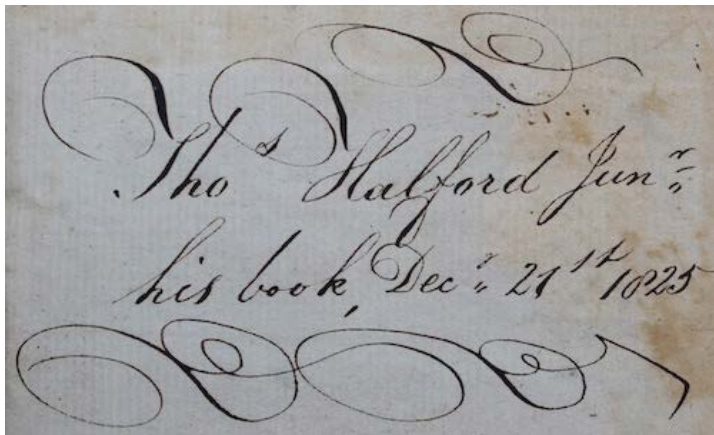 Thos Halford Junr
his book, Decr 21st 1825